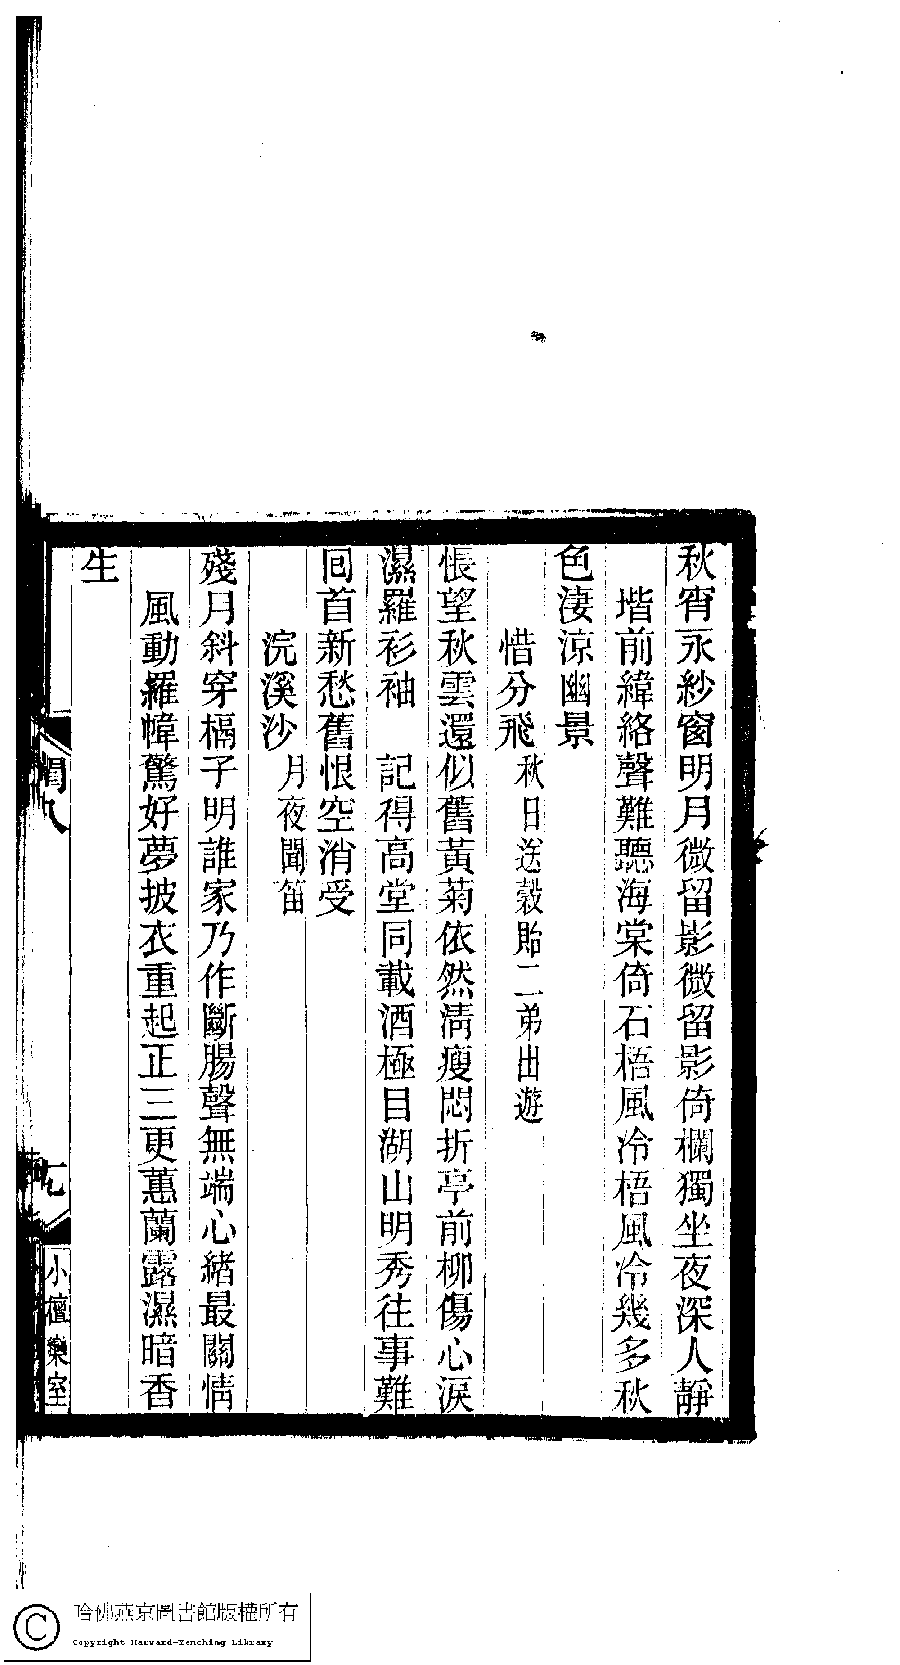 秋宵永紗窗明月微留影微留影倚欄獨坐夜深人靜
堦前緯絡聲難聽海棠倚石梧風冷梧風冷幾多秋
色淒涼幽景
惜分飛 秋日送穀貽二弟出遊
悵望秋雲還似舊黃菊依然淸瘦悶折亭前柳傷心淚
濕羅衫袖 記得高堂同載酒極目湖山明秀往事難
囘首新愁舊恨空消受
浣溪沙 月夜聞笛
殘月斜穿槅子明誰家乃作斷腸聲無端心緒最關情
風動羅幃驚好夢披衣重起正三更蕙蘭露濕暗香
生
小檀欒室
哈佛燕京圖書館版權所有
Copyright Harvard-Yenching Library